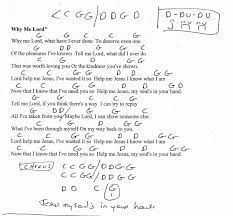 C C G G / D D G D
D - DU - DU
Why Me Lord"
G G C G
Why me Lord, what have I ever done To deserve even one
G D D G G
Of the pleasures I've known Tell me Lord, what did I ever do
C G D G
That was worth loving you Or the kindness you've shown.
C C G G D D G G
Lord help me Jesus, I've wasted it so Help me Jesus I know what I am
C C G G D D G
Now that I know that I need you so Help me Jesus, my soul's in your hand.
G C G
Tell me Lord, if you think there's a way I can try to repay
G D D G G
All I've taken from you Maybe Lord, I can show someone else
C G D G
What I've been through myself On my way back to you.
C C G G D D G G
Lord help me Jesus, I've wasted it so Help me Jesus I know what I am
C C G G D D G
Now that I know that I need you so Help me Jesus, my soul's in your hand.
CHORUS C C G G / D D G G
C C G G / D D G G
D D C G
Jesus my soul's in your hand